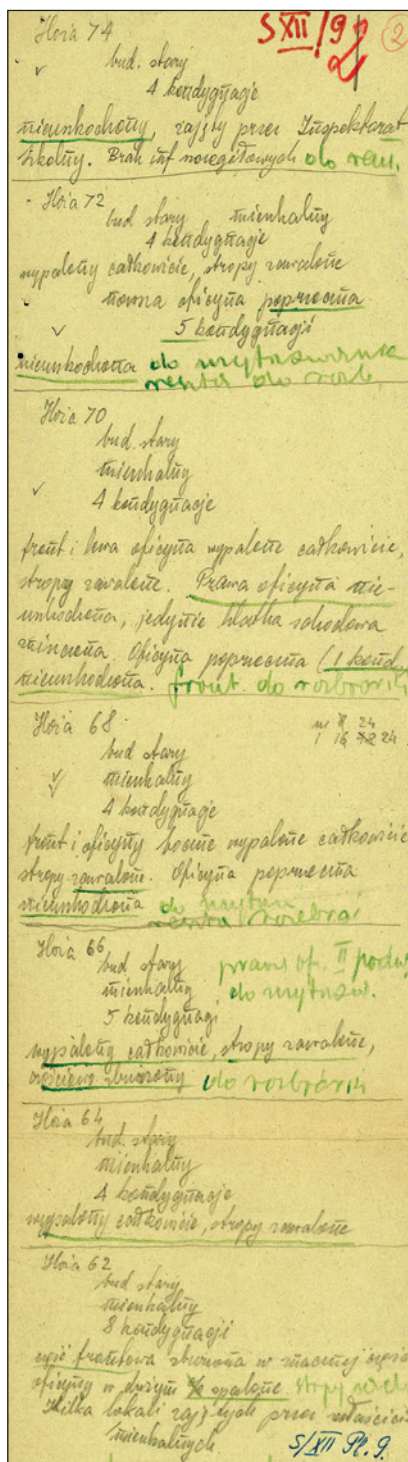 Hoża 74 S XII/9 2
bud. stary
4 kondygnacje
nieuszkodzony, zajęty przez Inspektorat
Szkolny. Brak inf szczegółowych do rem.
Hoża 72
bud stary mieszkalny
4 kondygnacje
wypalony całkowicie, stropy zawalone
nowsza oficyna poprzeczna
5 kondygnacji
nieuszkodzona do wytrzebienia
reszta do rozb.
Hoża 70
bud. stary
mieszkalny
4 kondygnacje
front i lewa oficyna wypalone całkowicie,
stropy zawalone. Prawa oficyna nie-
uszkodzona, jedynie klatka schodowa
zniszczona. Oficyna poprzeczna (1 kond.
nieuszkodzona. front. do rozbiórki
Hoża 68 24
bud stary 1 16 24
mieszkalny
4 kondygnacje
front i oficyny boczne wypalone całkowicie
stropy zawalone. Oficyna poprzeczna
nieuszkodzona do
reszta rozebrać
Hoża 66
bud stary prawa of. II podw.
mieszkalny do
5 kondygnacji
wypalony całkowicie, stropy zawalone,
częściowo zburzony do rozbiórki
Hoża 64
bud. stary
mieszkalny
4 kondygnacje
wypalony całkowicie, stropy zawalone
Hoża 62
bud stary
mieszkalny
8 kondygnacji
część frontowa zburzona w znacznej części
oficyny w dużym % spalone
Kilka lokali zajętych przez właścicieli
mieszkalnych S/XII Pl. 9.